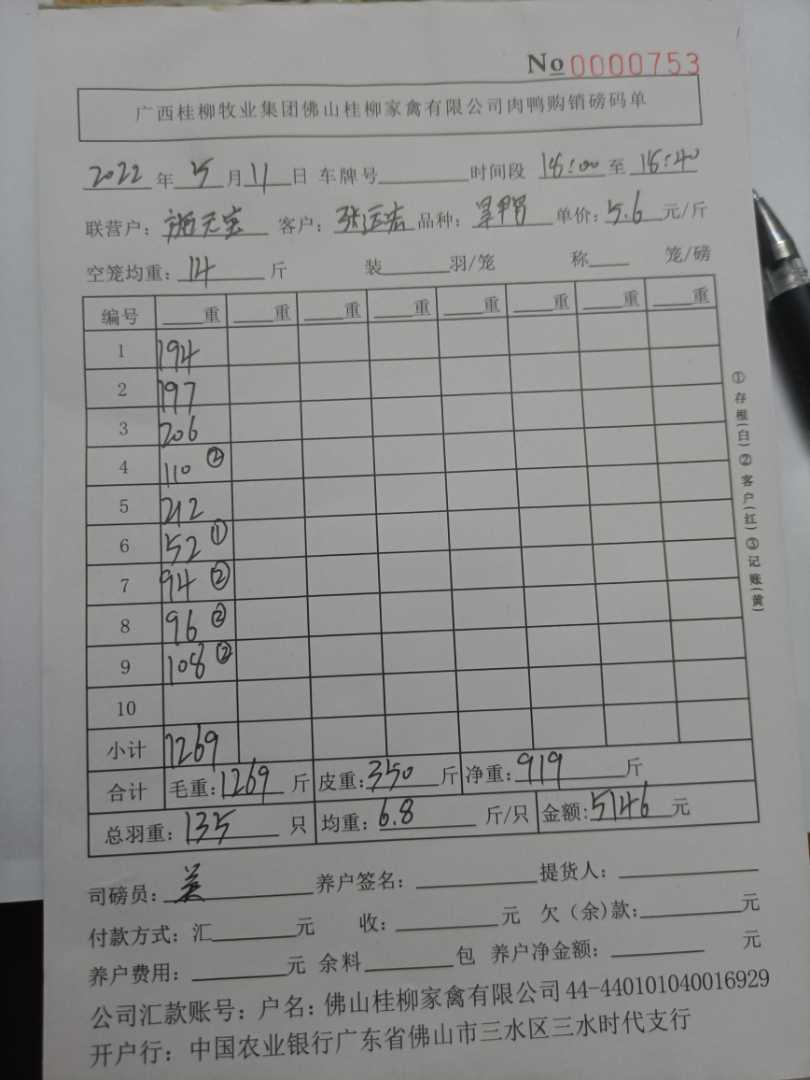 No 0000753
广西桂柳牧业集团佛山桂柳家禽有限公司肉鸭购销磅码单
2022 年 5 月 11 日 车牌号 时间段 18:00 至 18:40
联营户: 客户: 张运 品种: 单价: 5.6 元/斤
空笼均重: 14 斤 装 羽/笼 称 笼/磅
编号 重 重 重 重 重 重 重 重
1 194
2 197
3 206
4 110 ②
5 212
6 52 ①
7 94 ②
8 96 ②
9 108 ②
10
小计 1269
合计 毛重: 1269 斤 皮重: 350 斤 净重: 919 斤
总羽重: 135 只 均重: 6.8 斤/只 金额: 5146 元
司磅员: 养户签名: 提货人:
付款方式: 汇 元 收: 元 欠(余)款: 元
养户费用: 元 余料 包 养户净金额: 元
公司汇款账号: 户名: 佛山桂柳家禽有限公司 44-440101040016929
开户行: 中国农业银行广东省佛山市三水区三水时代支行
①存根(白)②客户(红)③记账(黄)